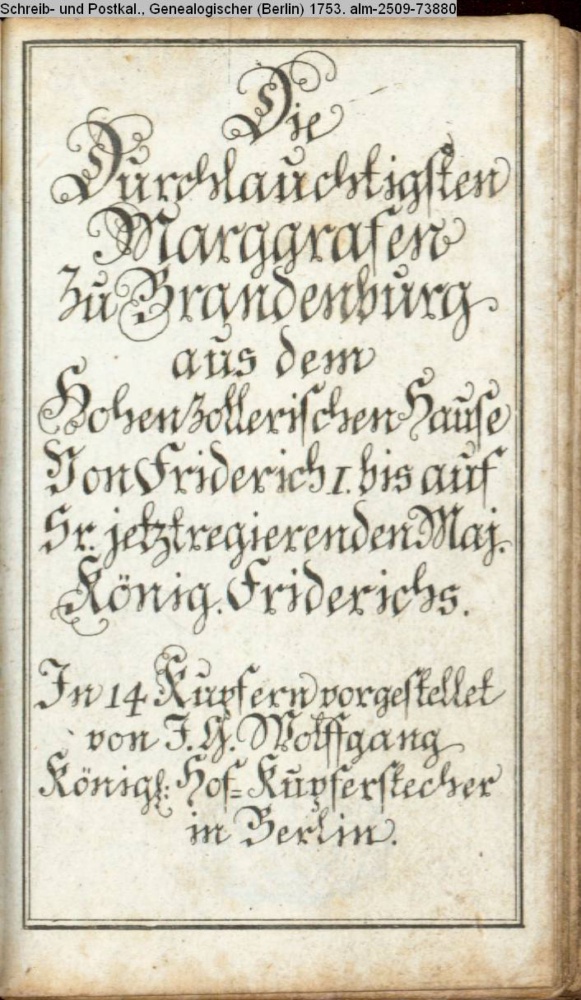 Schreib- und Postkal., Genealogischer (Berlin) 1753. alm-2509-73880
Die
Durchlauchtigsten
Marggrafen
zu Brandenburg
aus dem
Hohenzollerischen Hause
Von Friderich I. bis auf
Sr. jetztregierenden Maj.
König. Friderichs.
In 14 Kupfern vorgestellet
von J. G. Wolffgang
Königl: Hof= Kupferstecher
in Berlin.